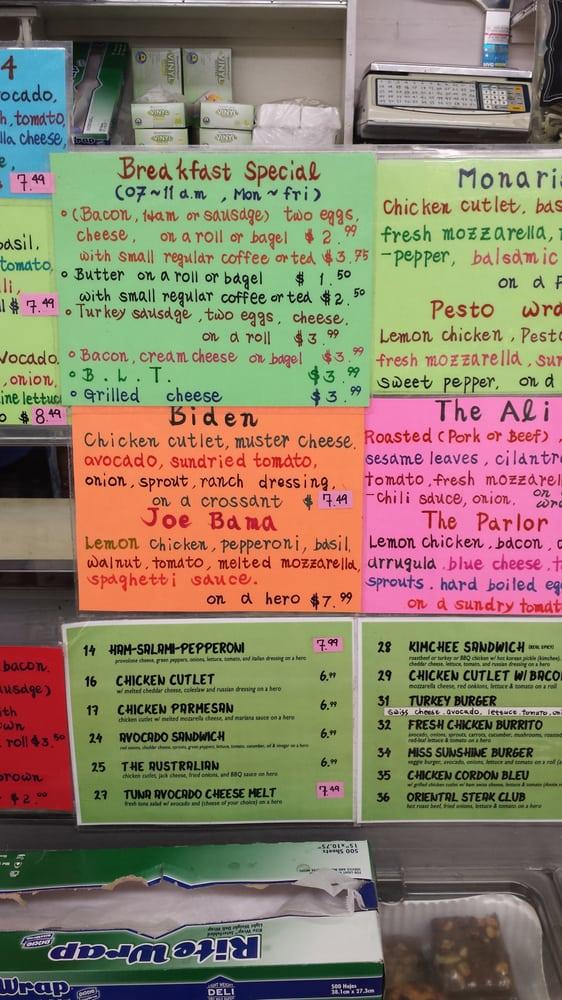 4
ocado,
h, tomato,
lla cheese,
e,
7.49
basil,
tomato,
li,
l $ 7.49
vocado,
, onion,
ine lettuc
o $ 8.49
Breakfast Special
(07~11 a.m , Mon ~ fri)
◦ (Bacon, Ham or sausage) two eggs,
cheese, on a roll or bagel $ 2.99
with small regular coffee or ted $3.75
◦ Butter on a roll or bagel $ 1.50
with small regular coffee or ted $2.50
◦ Turkey sausage , two eggs, cheese,
on a roll $3.99
◦ Bacon, cream cheese on bagel $3.99
◦ B. L. T. $3.99
◦ Grilled cheese $3.99
Monaris
Chicken cutlet, bas
fresh mozzarella, r
-pepper, balsamic
on a f
Pesto wra
Lemon chicken, Pesto
fresh mozzarella, sun
sweet pepper, on a
Biden
Chicken cutlet, muster cheese,
avocado, sundried tomato,
onion, sprout, ranch dressing,
on a crossant $ 7.49
Joe Bama
Lemon Chicken, pepperoni, basil,
walnut, tomato, melted mozzarella,
spaghetti sauce.
on a hero $7.99
The Ali
Roasted (Pork or Beef) ,
sesame leaves, cilantro
tomato, fresh mozzarel
-chili sauce, onion. on
wra
The Parlor
Lemon chicken, bacon, a
arrugula. blue cheese, t
sprouts. hard boiled eg
on a sundry tomat
bacon.
usage)
ith
own
roll $3.50
brown
$ 2.00
14 HAM-SALAMI-PEPPERONI 7.99
provolone cheese, green peppers, onions, lettuce, tomato, and italian dressing on a hero
16 CHICKEN CUTLET 6.99
w/ melted cheddar cheese, coleslaw and russian dressing on a hero
17 CHICKEN PARMESAN 6.99
chicken cutlet w/ melted mozarella cheese, and mariana sauce on a hero
24 AVOCADO SANDWICH 6.99
25 THE AUSTRALIAN 6.99
chicken cutlet, jack cheese, fried onions, and BBQ sauce on hero
27 TUNA AVOCADO CHEESE MELT 7.49
fresh tuna salad w/ avocado and (cheese of your choice) on a hero
28 KIMCHEE SANDWICH
29 CHICKEN CUTLET W/ BACO
mozzarella cheese, red onions, lettuce & tomato on a roll
31 TURKEY BURGER
swiss cheese, avocado, lettuce, tomato, oni
32 FRESH CHICKEN BURRITO
34 MISS SUNSHINE BURGER
veggie burger, avocado, onions, lettuce and tomato on a roll
35 CHICKEN CORDON BLEU
36 ORIENTAL STEAK CLUB
hot roast beef, fried onions, lettuce & tomato on a hero
500 Sheets
15"x10.75"
Rite Wrap
Light Weight Deli Wrap
DIXIE
Wrap
DIXIE
LIGHT WEIGHT
DELI
500 Hojas
38.1cm x 27.3cm